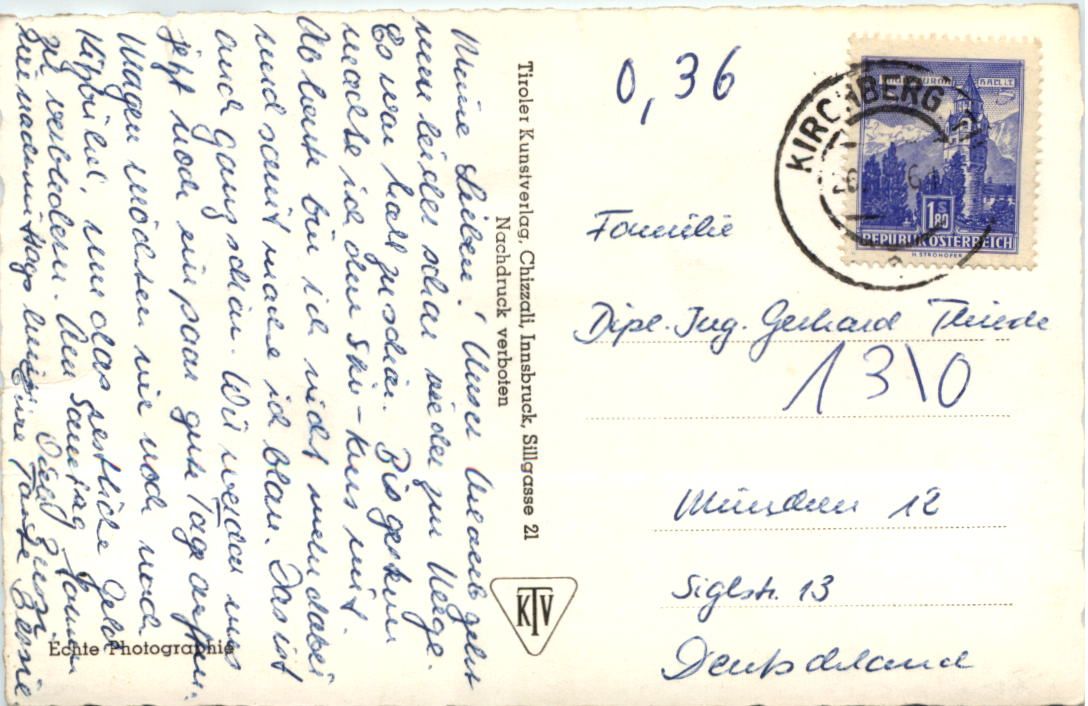 Meine Lieben! Unser Urlaub geht
nun leider schon wieder zur Neige.
Es war halt zu schön. Bis gestern
machte ich den Ski-Kurs mit.
Ab heute bin ich nicht mehr dabei
und somit mache ich blau. Das ist
auch ganz schön. Wir werden uns
jetzt noch ein paar gute Tage
Morgen möchten wir noch nach
Kitzbühel, um das restliche Geld
zu verbuttern. Am Samstag kommen
wir nachmittags heim.
Eure Tante
Echte Photographie
Tiroler Kunstverlag, Chizzali, Innsbruck, Sillgasse 21
Nachdruck verboten
KTV
0,36
KIRCHBERG
1.80
S
REPUBLIK ÖSTERREICH
H. STROHOFER
Familie
Dipl. Ing. Gerhard Thiede
13\0
München 12
Siglstr. 13
Deutschland